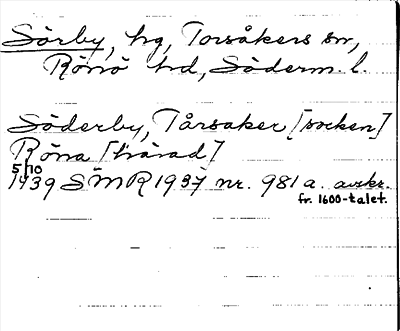 Sörby, hg, Torsåkers sn,
Rönö hd, Söderm. l.
Söderby, Tårsaker [socken]
Röna [härad]
5/10
1439 SMR 1937 nr. 981 a. avskr.
fr. 1600-talet.